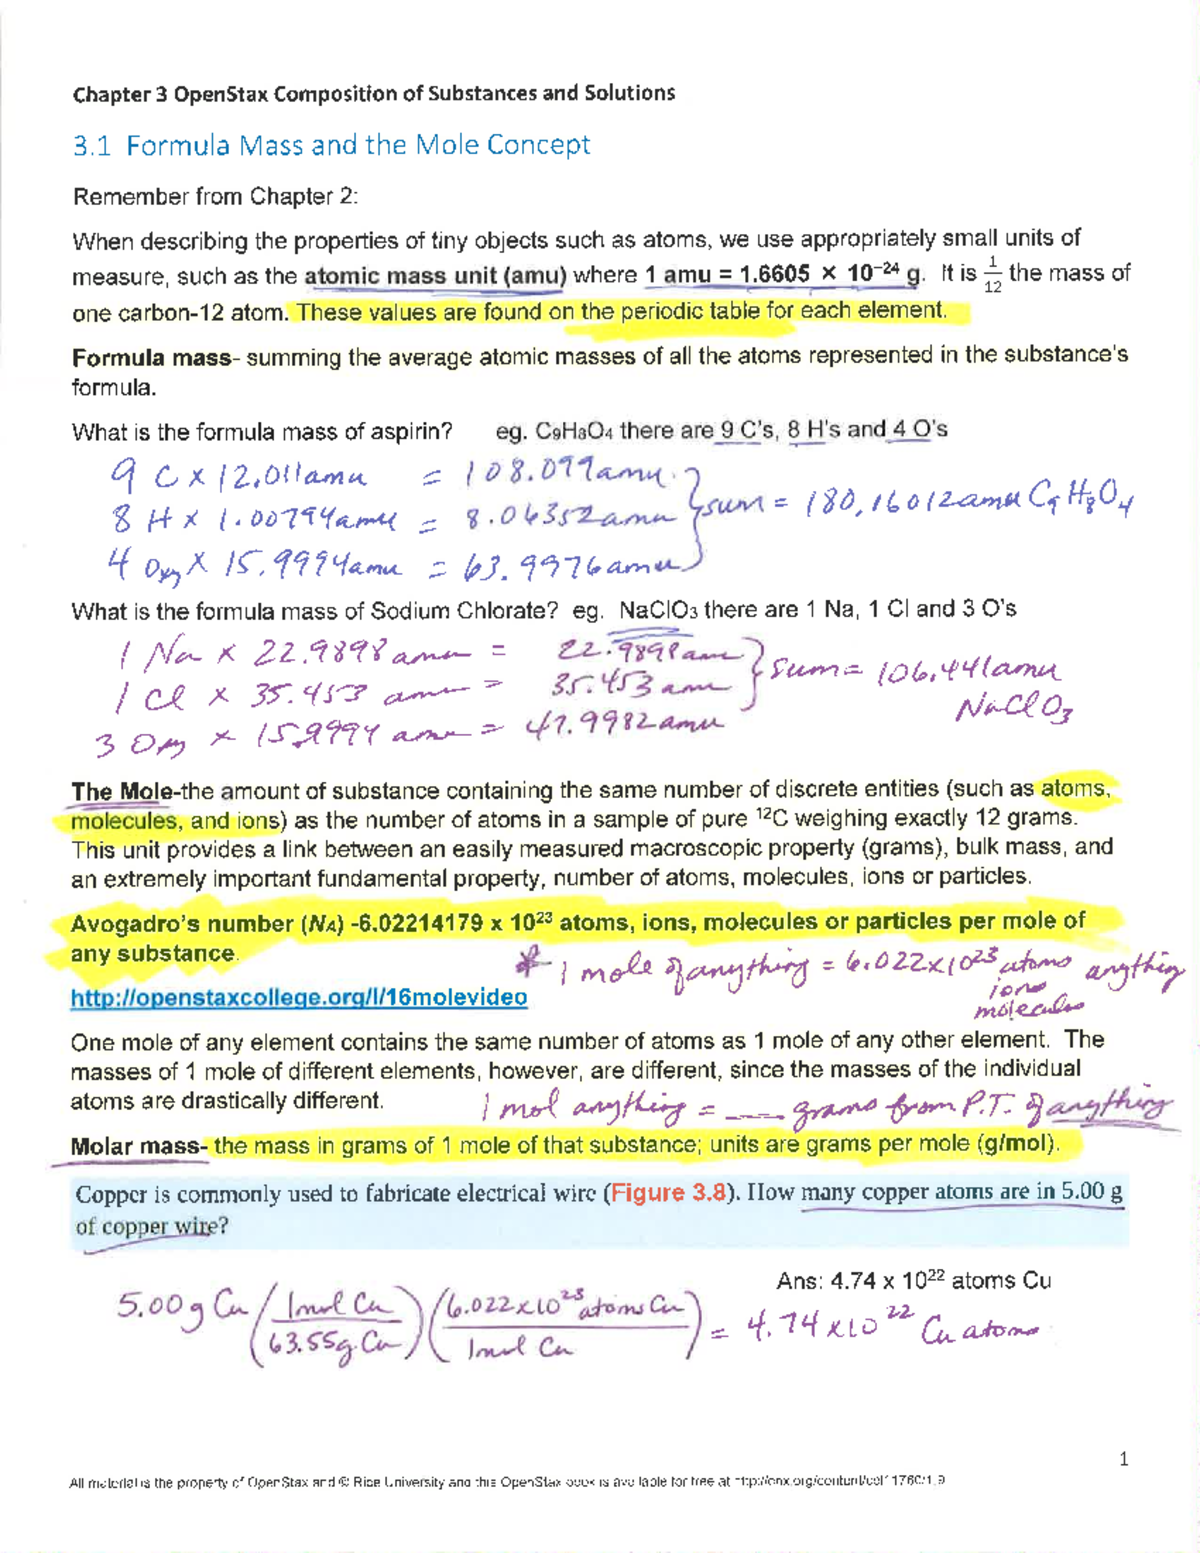 Chapter 3 OpenStax Composition of Substances and Solutions
3.1 Formula Mass and the Mole Concept
Remember from Chapter 2:
When describing the properties of tiny objects such as atoms, we use appropriately small units of
measure, such as the atomic mass unit (amu) where 1 amu = 1.6605 × 10⁻²⁴ g. It is 1/12 the mass of
one carbon-12 atom. These values are found on the periodic table for each element.
Formula mass- summing the average atomic masses of all the atoms represented in the substance's
formula.
What is the formula mass of aspirin? eg. C₉H₈O₄ there are 9 C's, 8 H's and 4 O's
9 C x 12.011amu = 108.099amu
8 H x 1.00794amu = 8.06352amu } sum = 180.16012amu C₉H₈O₄
4 Oxy x 15.9994amu = 63.9976amu
What is the formula mass of Sodium Chlorate? eg. NaClO₃ there are 1 Na, 1 Cl and 3 O's
1 Na x 22.9898 amu = 22.9898amu
1 Cl x 35.453 amu = 35.453 amu } sum = 106.441amu
NaClO₃
3 Oxy x 15.9994 amu = 47.9982amu
The Mole-the amount of substance containing the same number of discrete entities (such as atoms,
molecules, and ions) as the number of atoms in a sample of pure ¹²C weighing exactly 12 grams.
This unit provides a link between an easily measured macroscopic property (grams), bulk mass, and
an extremely important fundamental property, number of atoms, molecules, ions or particles.
Avogadro's number (Nᴀ) -6.02214179 x 10²³ atoms, ions, molecules or particles per mole of
any substance.
* 1 mole of anything = 6.022x10²³ atoms anything
ions
molecules
http://openstaxcollege.org/l/16molevideo
One mole of any element contains the same number of atoms as 1 mole of any other element. The
masses of 1 mole of different elements, however, are different, since the masses of the individual
atoms are drastically different.
1 mol anything = ___ grams from P.T. of anything
Molar mass- the mass in grams of 1 mole of that substance; units are grams per mole (g/mol).
Copper is commonly used to fabricate electrical wire (Figure 3.8). How many copper atoms are in 5.00 g
of copper wire?
Ans: 4.74 x 10²² atoms Cu
5.00g Cu (1mol Cu / 63.55g Cu) (6.022x10²³ atoms Cu / 1mol Cu) = 4.74 x10²² Cu atoms
1
All material is the property of OpenStax and © Rice University and this OpenStax book is available for free at